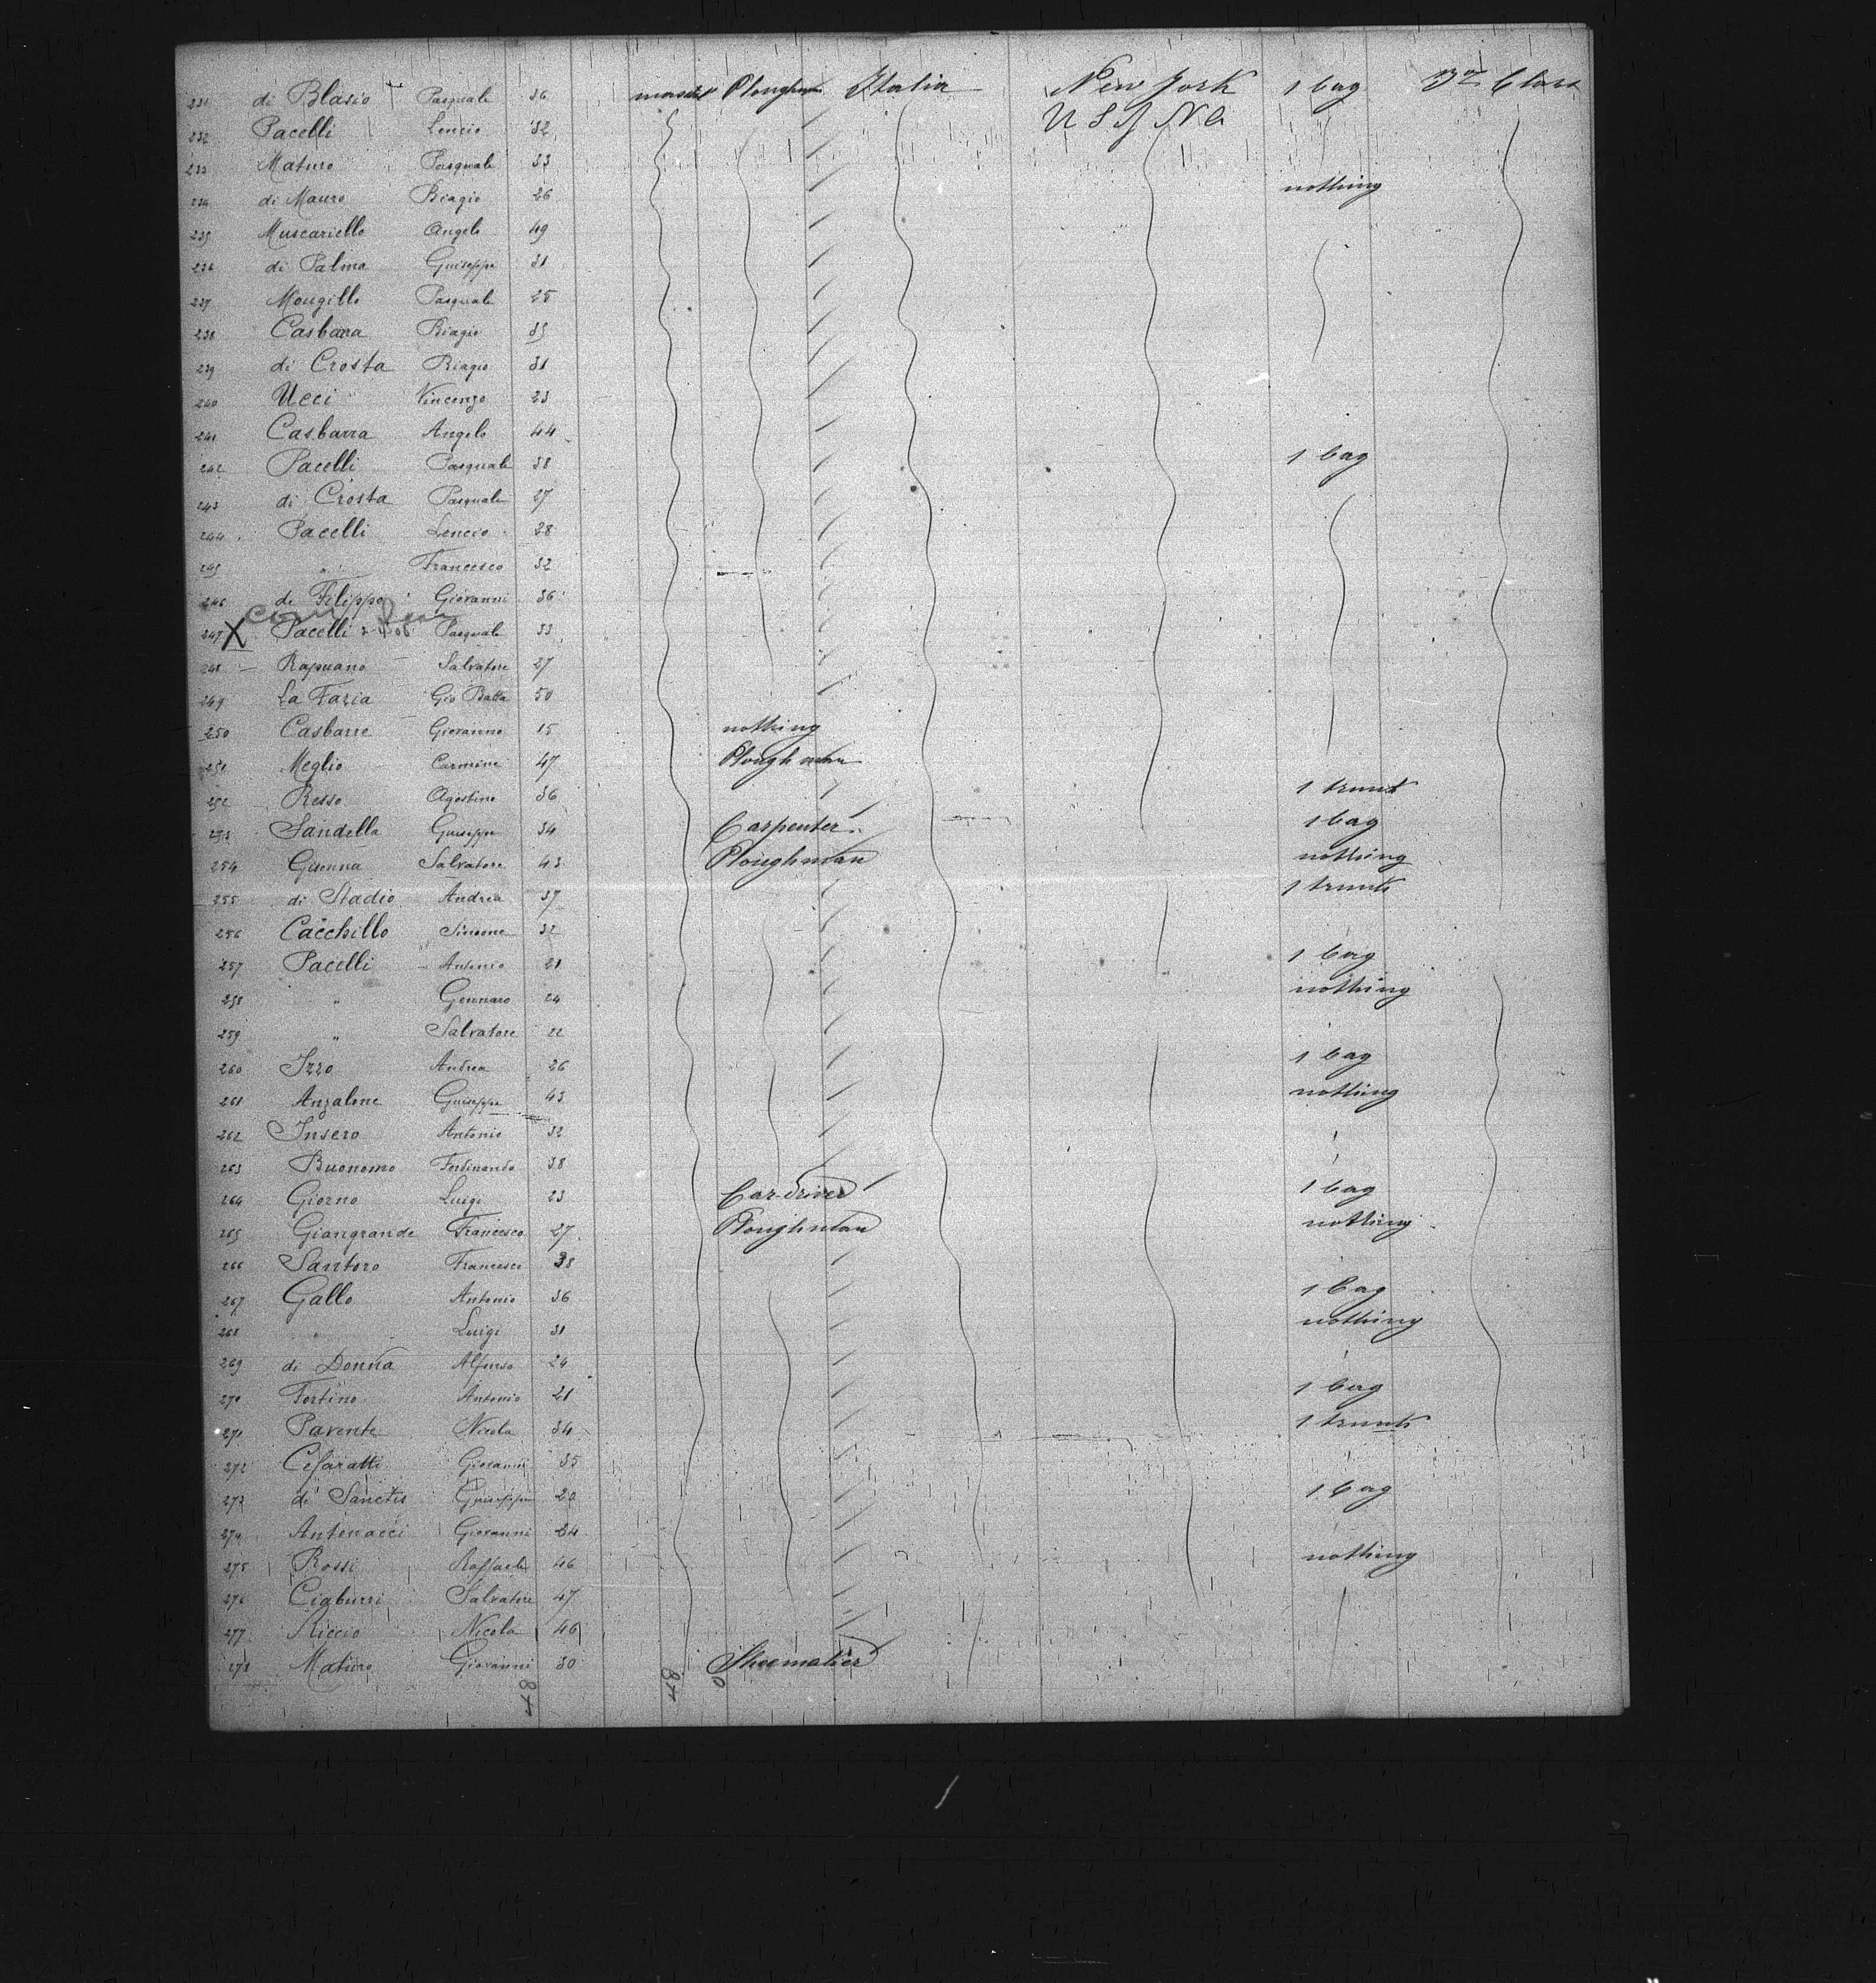 231 di Blasio Pasquale 36 Ploughman Italia New York 1 bag 3d Class
232 Pacelli Lencio 32 U S of N A
233 Maturo Pasquale 33
234 di Mauro Biagio 26 nothing
235 Muscariello Angelo 49
236 di Palma Guiseppe 31
237 Mongillo Pasquale 25
238 Casbarra Biagio 35
239 di Crosta Biagio 31
240 Ucci Vincenzo 23
241 Casbarra Angelo 44
242 Pacelli Pasquale 38 1 bag
243 di Crosta Pasquale 27
244 Pacelli Lencio 28
245 " Francesco 32
246 de Filippo Giovanni 36
247 X Pacelli Pasquale 33
248 Rapuano Salvatore 27
249 La Fazia Gio Batta 50
250 Casbarre Giovanno 15 nothing
251 Meglio Carmine 47 Ploughman
252 Resso Agostino 36 1 trunk
253 Sandella Guiseppe 34 Carpenter 1 bag
254 Guenna Salvatore 43 Ploughman nothing
255 di Stadio Andrea 37 1 trunk
256 Cacchillo Simone 32
257 Pacelli Antonio 21 1 bag
258 " Gennaro 24 nothing
259 " Salvatore 22
260 Izzo Andrea 26 1 bag
261 Anzalone Guiseppe 43 nothing
262 Insero Antonio 32
263 Buonomo Ferdinando 38
264 Giorno Luigi 23 Car-driver 1 bag
265 Giangrande Francesco 27 Ploughman nothing
266 Santoro Francesco 38
267 Gallo Antonio 36 1 bag
268 " Luigi 31 nothing
269 di Donna Alfonso 24
270 Fortino Antonio 21 1 bag
271 Parente Nicola 34 1 trunk
272 Cefaratti Giovanni 35
273 di Sanctis Guiseppe 20 1 bag
274 Antenacci Giovanni 24
275 Rossi Raffaele 46 nothing
276 Ciaburri Salvatore 47
277 Riccio Nicola 46
278 Maturo Giovanni 30 Shoemaker
48 48 0